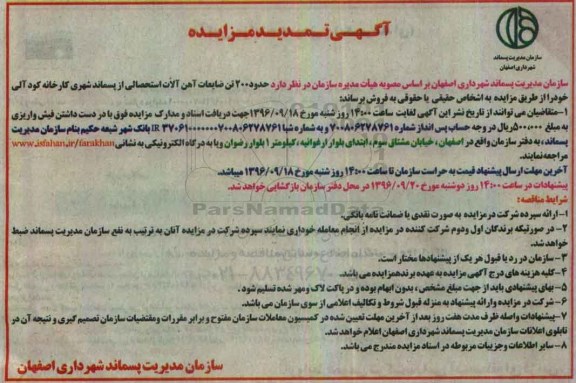 آگهی تمدید مزایده
سازمان مدیریت پسماند
شهرداری اصفهان
سازمان مدیریت پسماند شهرداری اصفهان بر اساس مصوبه هیأت مدیره سازمان در نظر دارد حدود ۲۰۰ تن ضایعات آهن آلات استحصالی از پسماند شهری کارخانه کود آلی
خود را از طریق مزایده به اشخاص حقیقی یا حقوقی به فروش برساند:
۱- متقاضیان می توانند از تاریخ نشر این آگهی لغایت ساعت ۱۴:۰۰ روز شنبه مورخ ۱۳۹۶/۰۹/۱۸ جهت دریافت اسناد و مدارک مزایده فوق با در دست داشتن فیش واریزی
به مبلغ ۵۰۰,۰۰۰ ریال در وجه حساب پس انداز شماره ۷۰۰۸۰۶۲۷۸۷۶۱ و به شماره شبا IR ۳۷۰۶۱۰۰۰۰۰۰۰۷۰۰۸۰۶۲۷۸۷۶۱ بانک شهر شعبه حکیم بنام سازمان مدیریت
پسماند، به دفتر سازمان واقع در اصفهان، خیابان مشتاق سوم، ابتدای بلوار ارغوانیه، کیلومتر ۱ بلوار رضوان ویا به درگاه الکترونیکی به نشانی www.isfahan.ir/farakhan
مراجعه نمایند.
آخرین مهلت ارسال پیشنهاد قیمت به حراست سازمان تا ساعت ۱۴:۰۰ روز شنبه مورخ ۱۳۹۶/۰۹/۱۸ میباشد.
پیشنهادات در ساعت ۱۴:۰۰ روز دوشنبه مورخ ۱۳۹۶/۰۹/۲۰ در محل دفتر سازمان بازگشایی خواهد شد.
شرایط مناقصه:
۱- ارائه سپرده شرکت در مزایده به صورت نقدی یا ضمانت نامه بانکی.
۲- در صورتیکه برندگان اول ودوم شرکت کننده در مزایده از انجام معامله خودداری نمایند سپرده شرکت در مزایده آنان به ترتیب به نفع سازمان مدیریت پسماند ضبط
خواهد شد.
۳- سازمان در رد یا قبول هر یک از پیشنهادها مختار است.
۴- کلیه هزینه های درج آگهی مزایده به عهده برنده مزایده می باشد.
۵- بهای پیشنهادی باید از جهت مبلغ مشخص، بدون ابهام بوده و در پاکت لاک ومهر شده تسلیم شود.
۶- شرکت در مزایده وارائه پیشنهاد به منزله قبول شروط و تکالیف اعلامی از سوی سازمان می باشد.
۷- پیشنهادات واصله ظرف مدت هفت روز بعد از آخرین مهلت تعیین شده در کمیسیون معاملات سازمان مفتوح و برابر مقررات ومقتضیات سازمان تصمیم گیری و نتیجه آن در
تابلوی اعلانات سازمان مدیریت پسماند شهرداری اصفهان اعلام خواهد شد.
۸- سایر اطلاعات وجزییات مربوطه در اسناد مزایده مندرج می باشد.
سازمان مدیریت پسماند شهرداری اصفهان
ParsNamadData